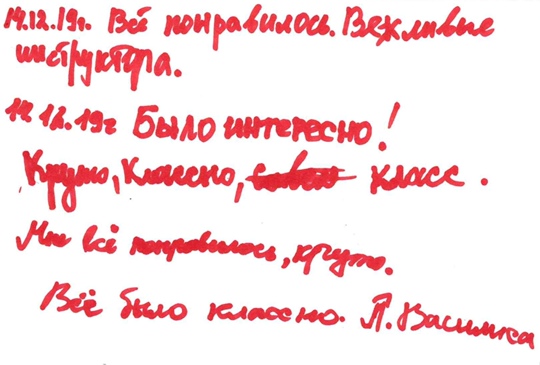 14.12.19г. Всё понравилось. Вежливые
инструктора.
14.12.19г Было интересно!
Круто, Классно, класс.
Мне всё понравилось, круто.
Всё было классно. Л.